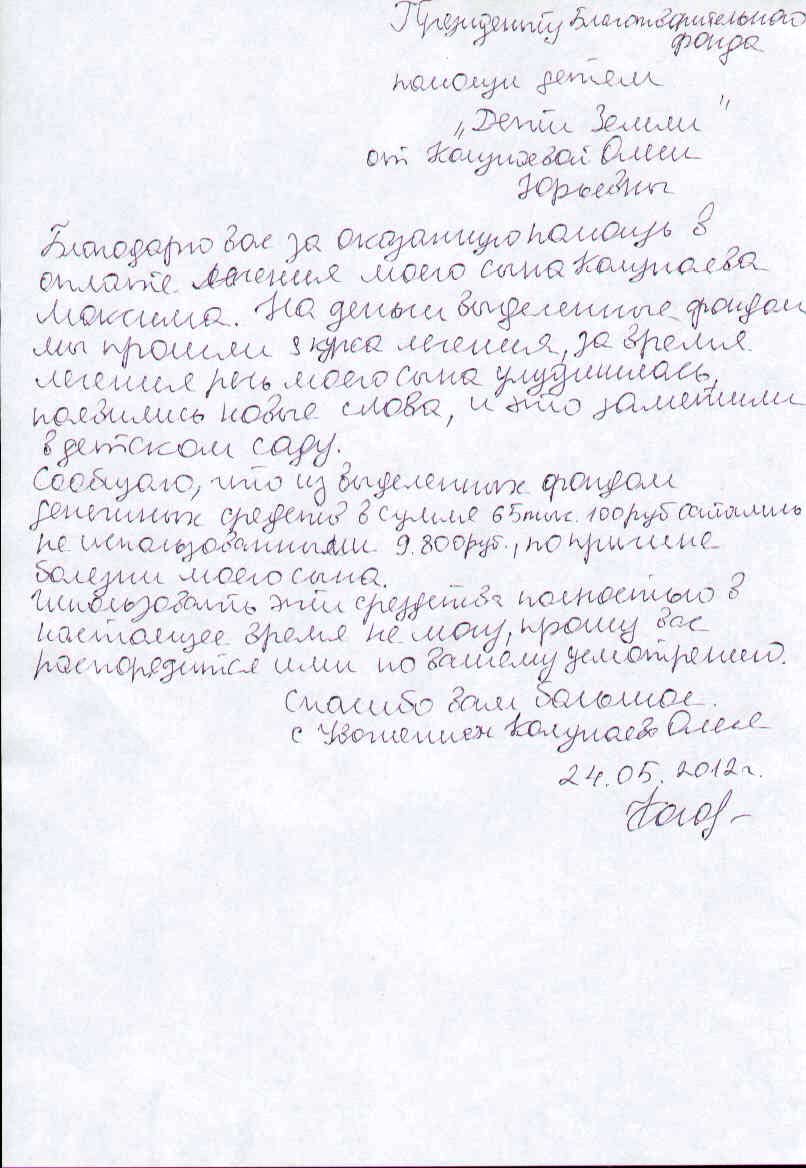 Президенту Благотворительного
фонда
помощи детям
"Дети Земли"
от Колупаевой Олеси
Юрьевны
Благодарю вас за оказанную помощь в
оплате лечения моего сына Колупаева
Максима. На деньги выделенные фондом
мы прошли 3 курса лечения, за время
лечения речь моего сына улучшилась,
появились новые слова, и это заметили
в детском саду.
Сообщаю, что из выделенных фондом
денежных средств в сумме 65тыс. 100руб остались
не использованными 9.800руб., по причине
болезни моего сына.
Использовать эти средства полностью в
настоящее время не могу, прошу вас
распорядится ими по вашему усмотрению.
Спасибо вам большое.
с Уважением Колупаева Олеся
24.05.2012г.